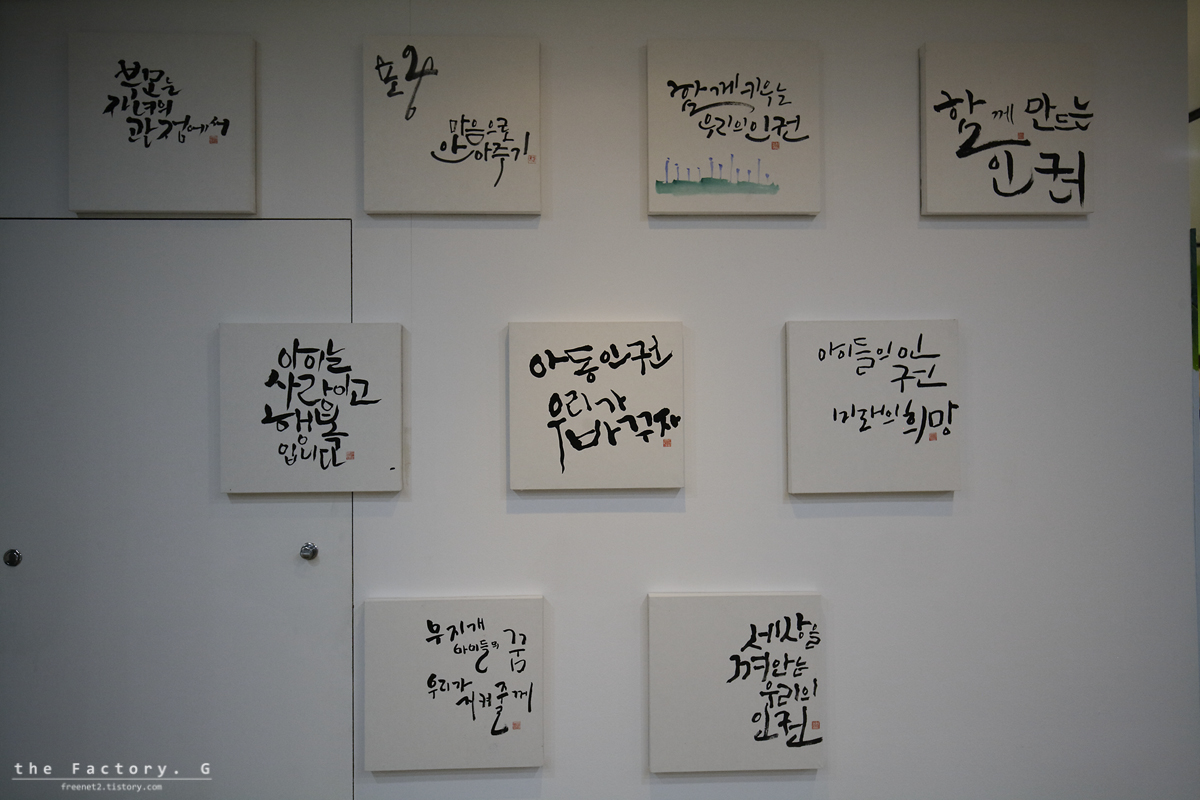 부모는
자녀의
관점에서
포옹
마음으로
안아주기
함께 키우는
우리의 인권
함께 만드는
인권
아이는
사랑이고
행복
입니다
아동인권
우리가
바꾸자
아이들의 인
권
미래의 희망
무지개
아이들의 꿈
우리가
지켜줄게
세상을
껴안는
우리의
인권
the Factory. G
freenet2.tistory.com